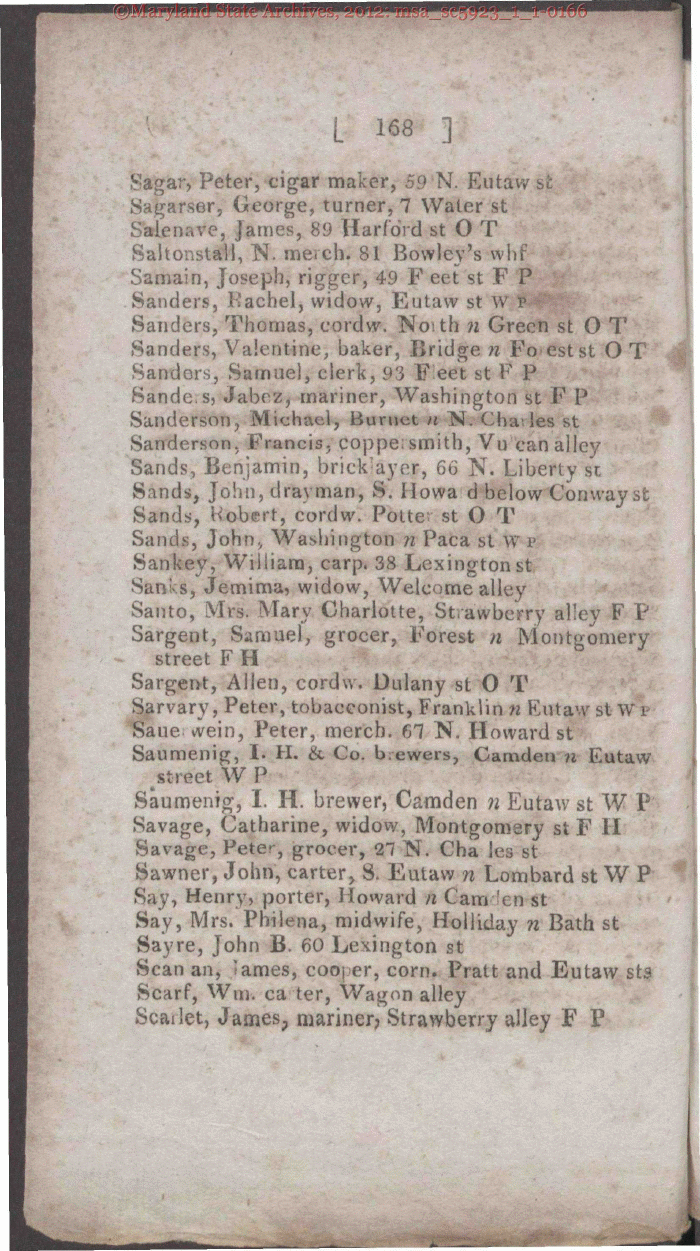 ©Maryland State Archives, 2012: msa_sc5923_1_1-0166
[ 168 ]
Sagar, Peter, cigar maker, 59 N. Eutaw st
Sagarser, George, turner, 7 Water st
Salenave, James, 89 Harford st O T
Saltonstall, N. merch. 81 Bowley's whf
Samain, Joseph, rigger, 49 F eet st F P
Sanders, Rachel, widow, Eutaw st W P
Sanders, Thomas, cordw. North n Green st O T
Sanders, Valentine, baker, Bridge n Fo est st O T
Sanders, Samuel, clerk, 93 Fleet st F P
Sanders, Jabez, mariner, Washington st F P
Sanderson, Michael, Burnet n N. Charles st
Sanderson, Francis, coppersmith, Vu can alley
Sands, Benjamin, bricklayer, 66 N. Liberty st
Sands, John, drayman, S. Howa d below Conway st
Sands, Robert, cordw. Potter st O T
Sands, John, Washington n Paca st W P
Sankey, William, carp. 38 Lexington st
Sanks, Jemima, widow, Welcome alley
Santo, Mrs. Mary Charlotte, Strawberry alley F P
Sargent, Samuel, grocer, Forest n Montgomery
street F H
Sargent, Allen, cordw. Dulany st O T
Sarvary, Peter, tobacconist, Franklin n Eutaw st W P
Sauerwein, Peter, merch. 67 N. Howard st
Saumenig, I. H. & Co. brewers, Camden n Eutaw
street W P
Saumenig, I. H. brewer, Camden n Eutaw st W P
Savage, Catharine, widow, Montgomery st F H
Savage, Peter, grocer, 27 N. Cha les st
Sawner, John, carter, S. Eutaw n Lombard st W P
Say, Henry, porter, Howard n Camden st
Say, Mrs. Philena, midwife, Holliday n Bath st
Sayre, John B. 60 Lexington st
Scan an, James, cooper, corn. Pratt and Eutaw sts
Scarf, Wm. ca ter, Wagon alley
Scarlet, James, mariner, Strawberry alley F P